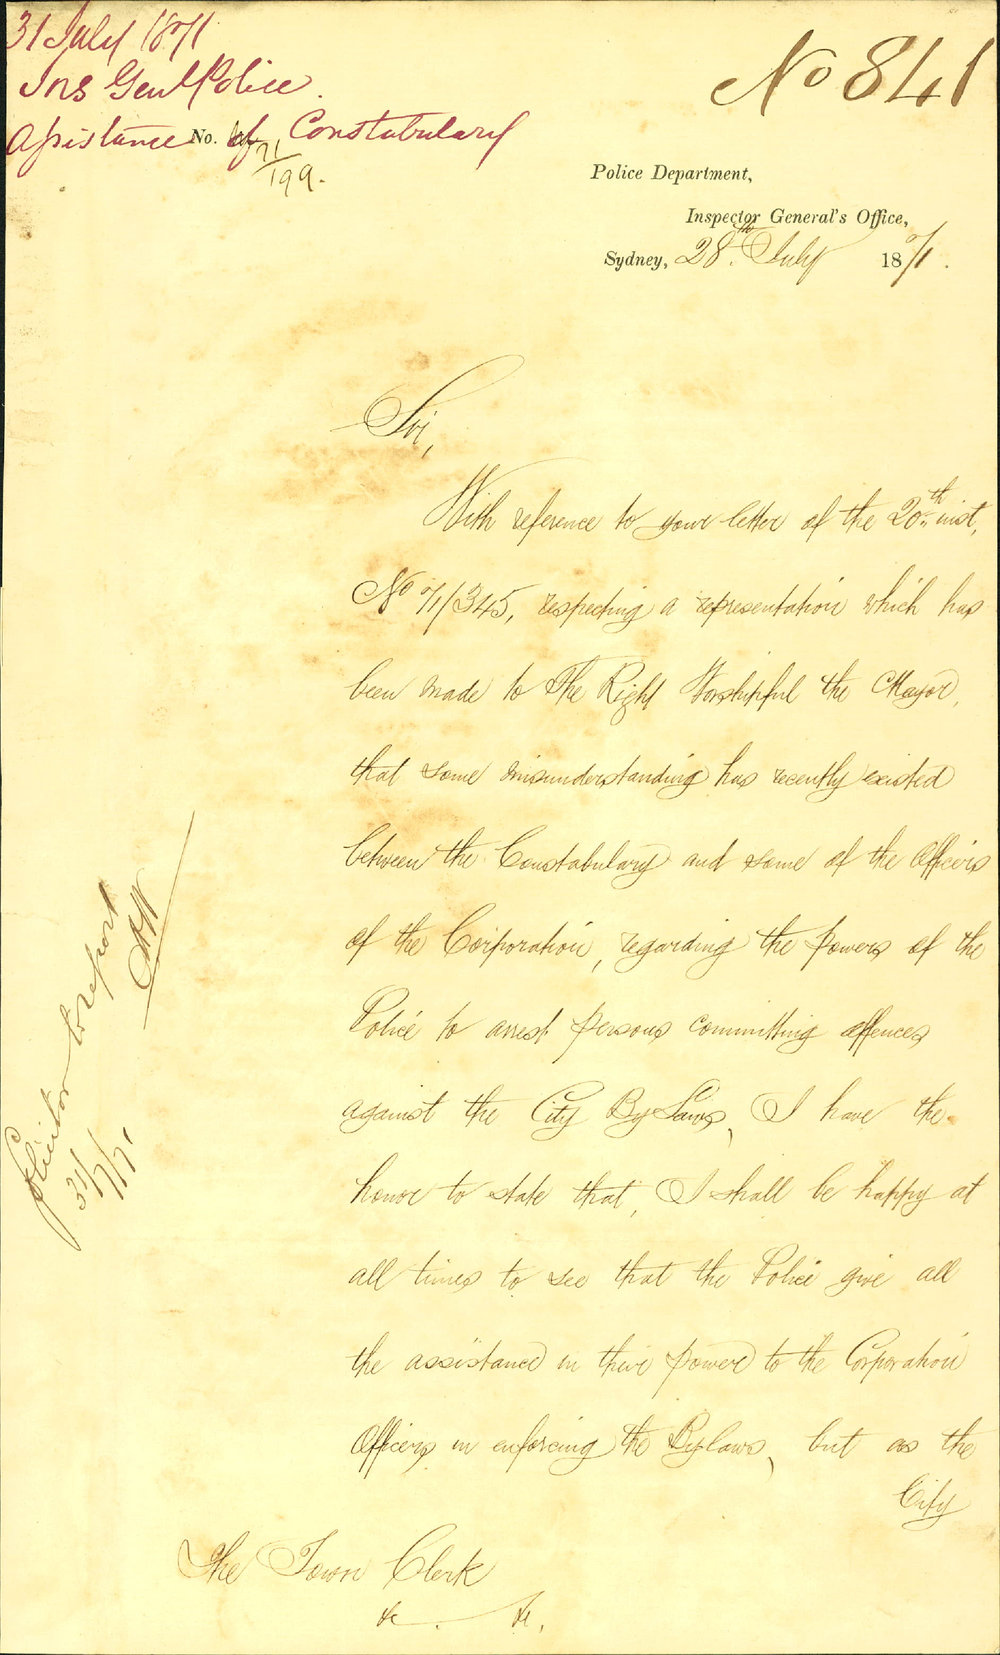 31 July 1871
No 841
Ins Genl Police.
Assistance of Constabulary
No. 71/199.
Police Department,
Inspector General's Office,
Sydney, 28th July 1871.
Sir,
With reference to your letter of the 20th inst,
No 71/345, respecting a representation which has
been made to The Right Worshipful the Mayor,
that some misunderstanding has recently existed
between the Constabulary and some of the Officers
of the Corporation, regarding the powers of the
Police to arrest persons committing offences
against the City By Laws, I have the
honor to state that, I shall be happy at
all times to see that the Police give all
the assistance in their power to the Corporation
Officers in enforcing the Bylaws, but as the
City
The Town Clerk
&c. &c.
Solicitor to report
31/7/71